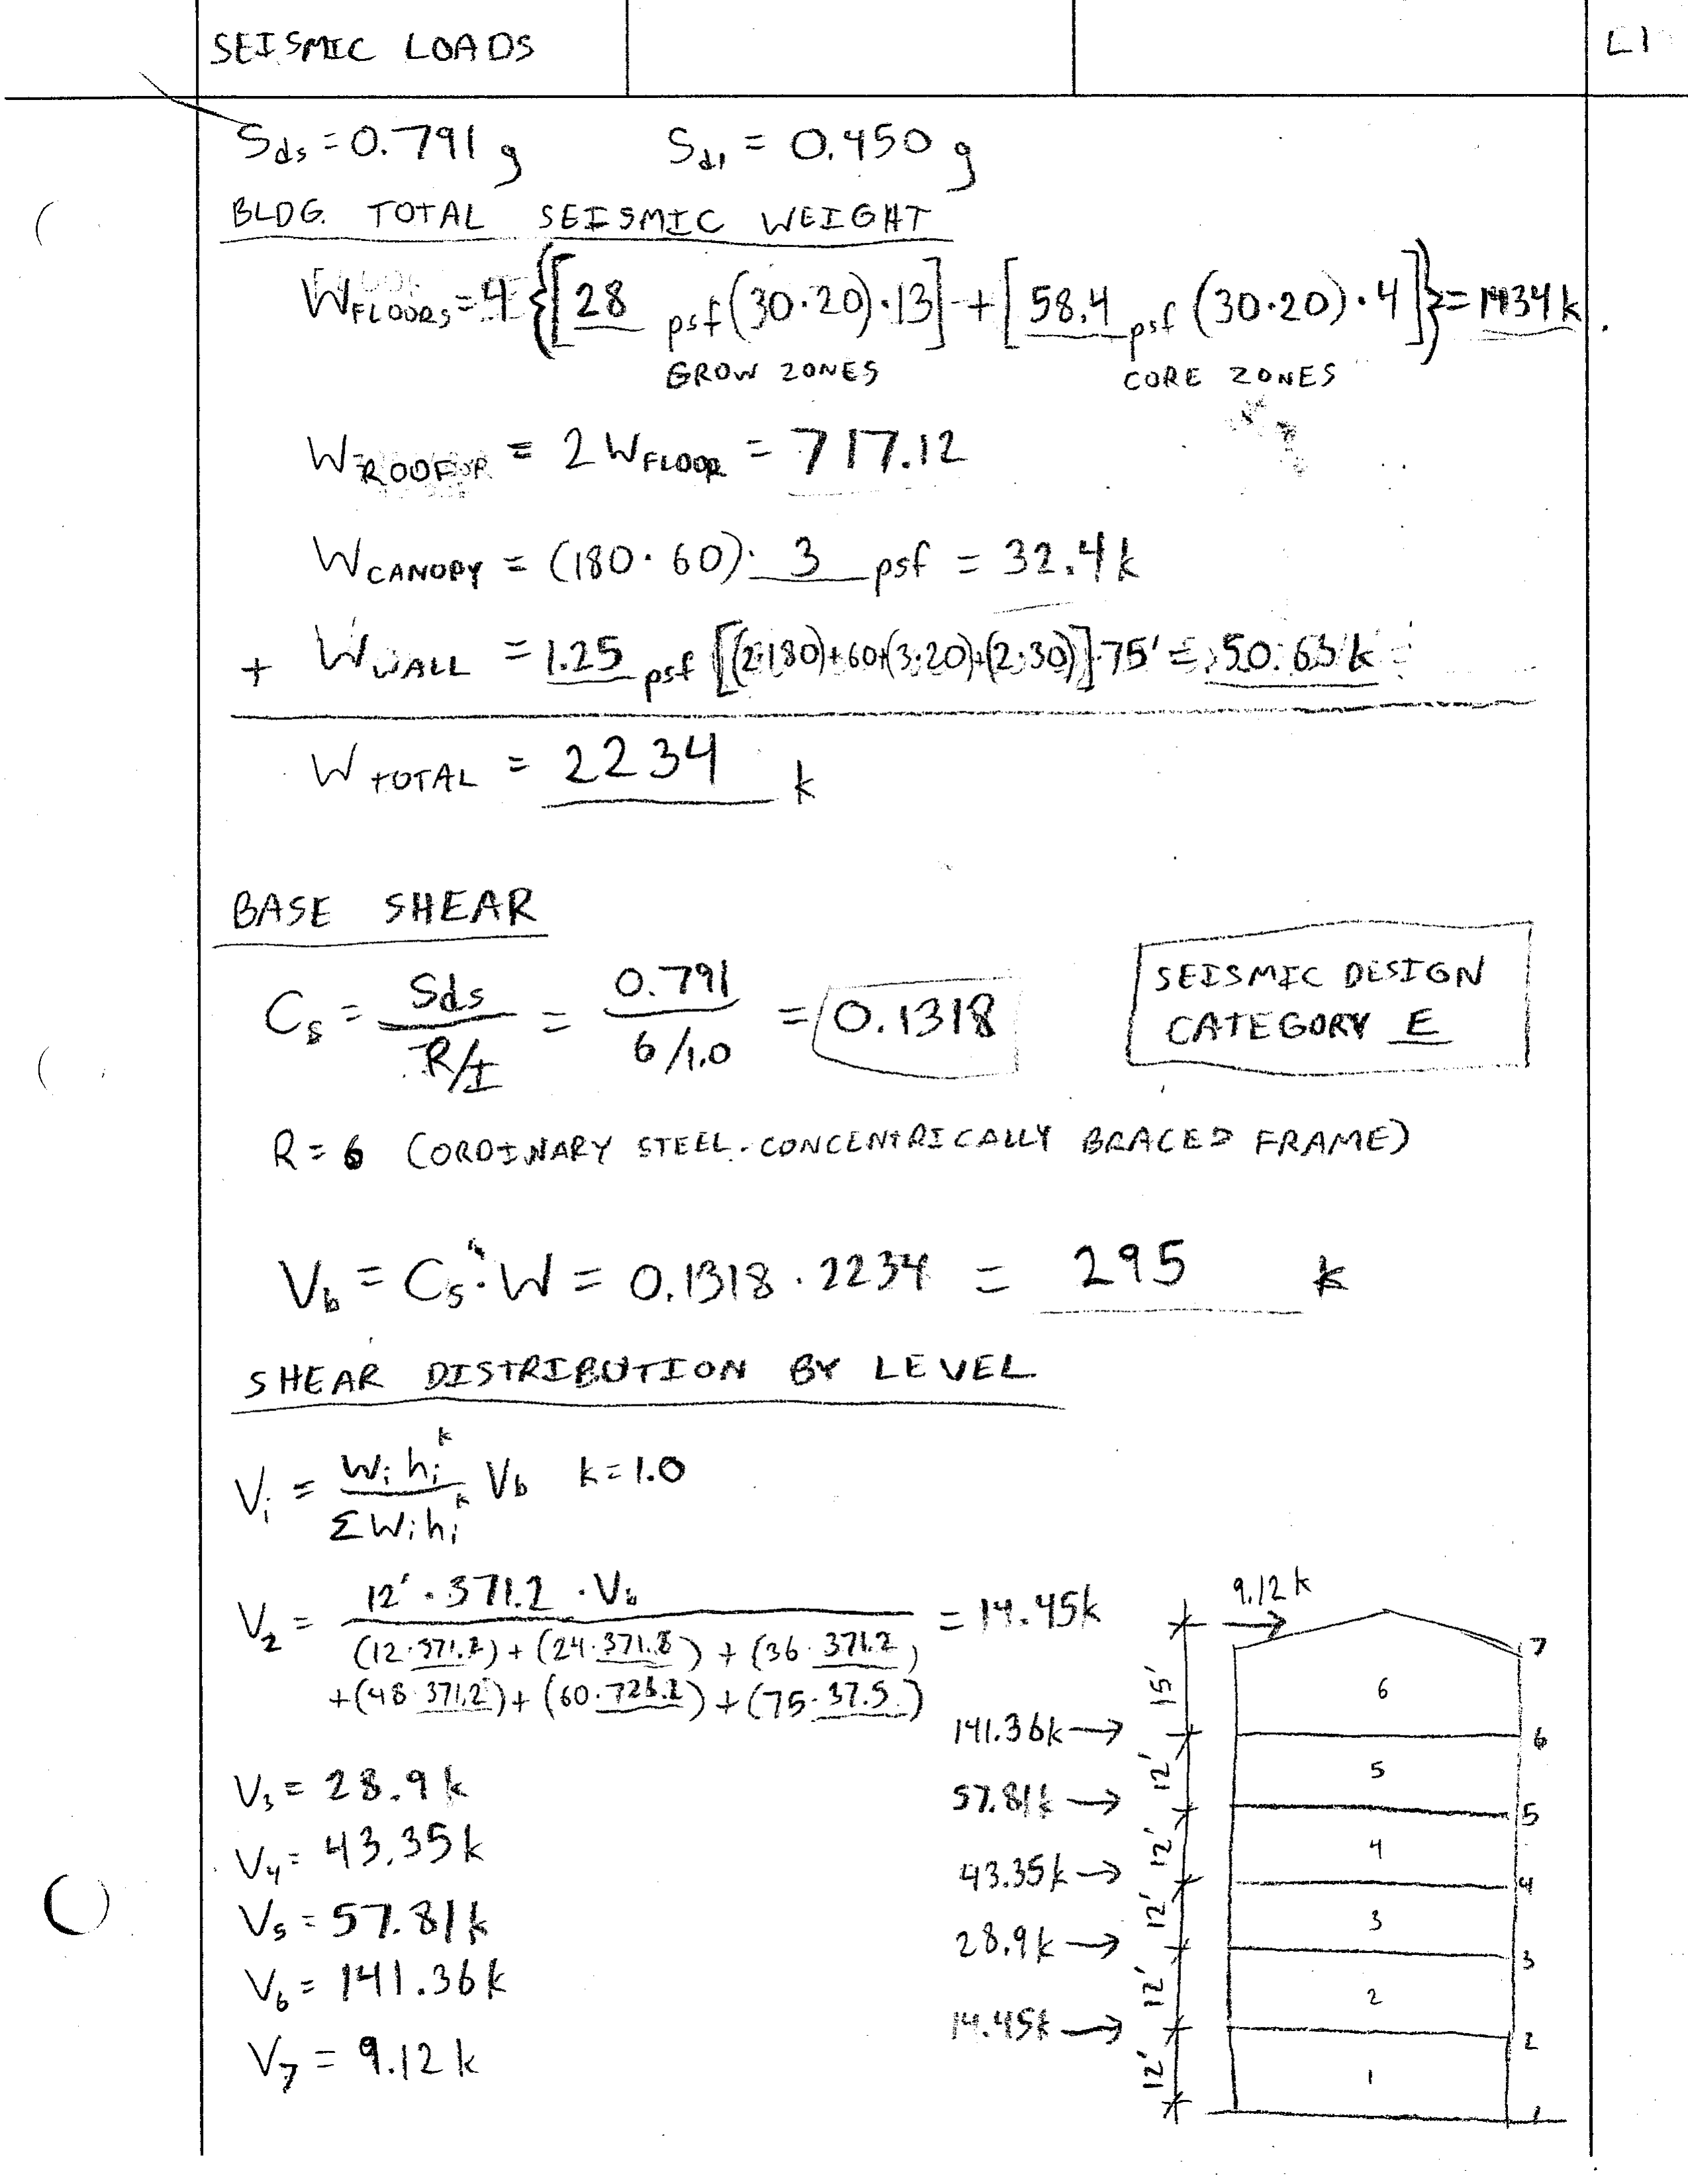 SEISMIC LOADS L1
Sds = 0.791 g Sd1 = 0.450 g
BLDG. TOTAL SEISMIC WEIGHT
WFLOORS = 4 {[28 psf (30·20)·13] + [58.4 psf (30·20)·4]} = 1434 k
GROW ZONES CORE ZONES
WROOF = 2 WFLOOR = 717.12
WCANOPY = (180·60)· 3 psf = 32.4 k
+ WWALL = 1.25 psf [(2·180)+60+(3·20)+(2·30)]·75' = 50.63 k
WTOTAL = 2234 k
BASE SHEAR
Cs = Sds / R/I = 0.791 / 6/1.0 = 0.1318
SEISMIC DESIGN
CATEGORY E
R = 6 (ORDINARY STEEL CONCENTRICALLY BRACED FRAME)
Vb = Cs · W = 0.1318 · 2234 = 295 k
SHEAR DISTRIBUTION BY LEVEL
Vi = Wi hi^k / ΣWi hi^k Vb k = 1.0
V2 = 12' · 371.2 · Vb / (12·371.2) + (24·371.8) + (36·371.2)
+(48·371.2) + (60·728.2) + (75·37.5) = 14.45k
V3 = 28.9 k
V4 = 43.35 k
V5 = 57.81 k
V6 = 141.36 k
V7 = 9.12 k
9.12 k
7
15' 6
141.36k → 6
12' 5
57.81k → 5
12' 4
43.35k → 4
12' 3
28.9k → 3
12' 2
14.45k → 2
12' 1
1